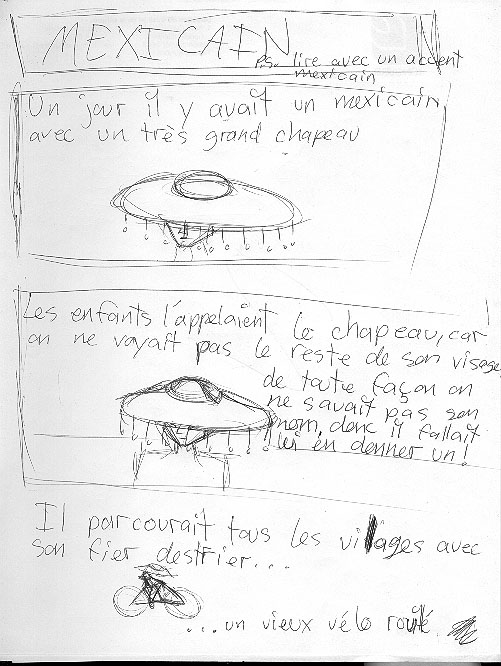 MEXICAIN
P.S. lire avec un accent
mexicain
Un jour il y avait un mexicain
avec un très grand chapeau
Les enfants l'appelaient le chapeau, car
on ne voyait pas le reste de son visage
de toute façon on
ne savait pas son
nom, donc il fallait
lui en donner un!
Il parcourait tous les villages avec
son fier destrier...
...un vieux vélo rouillé